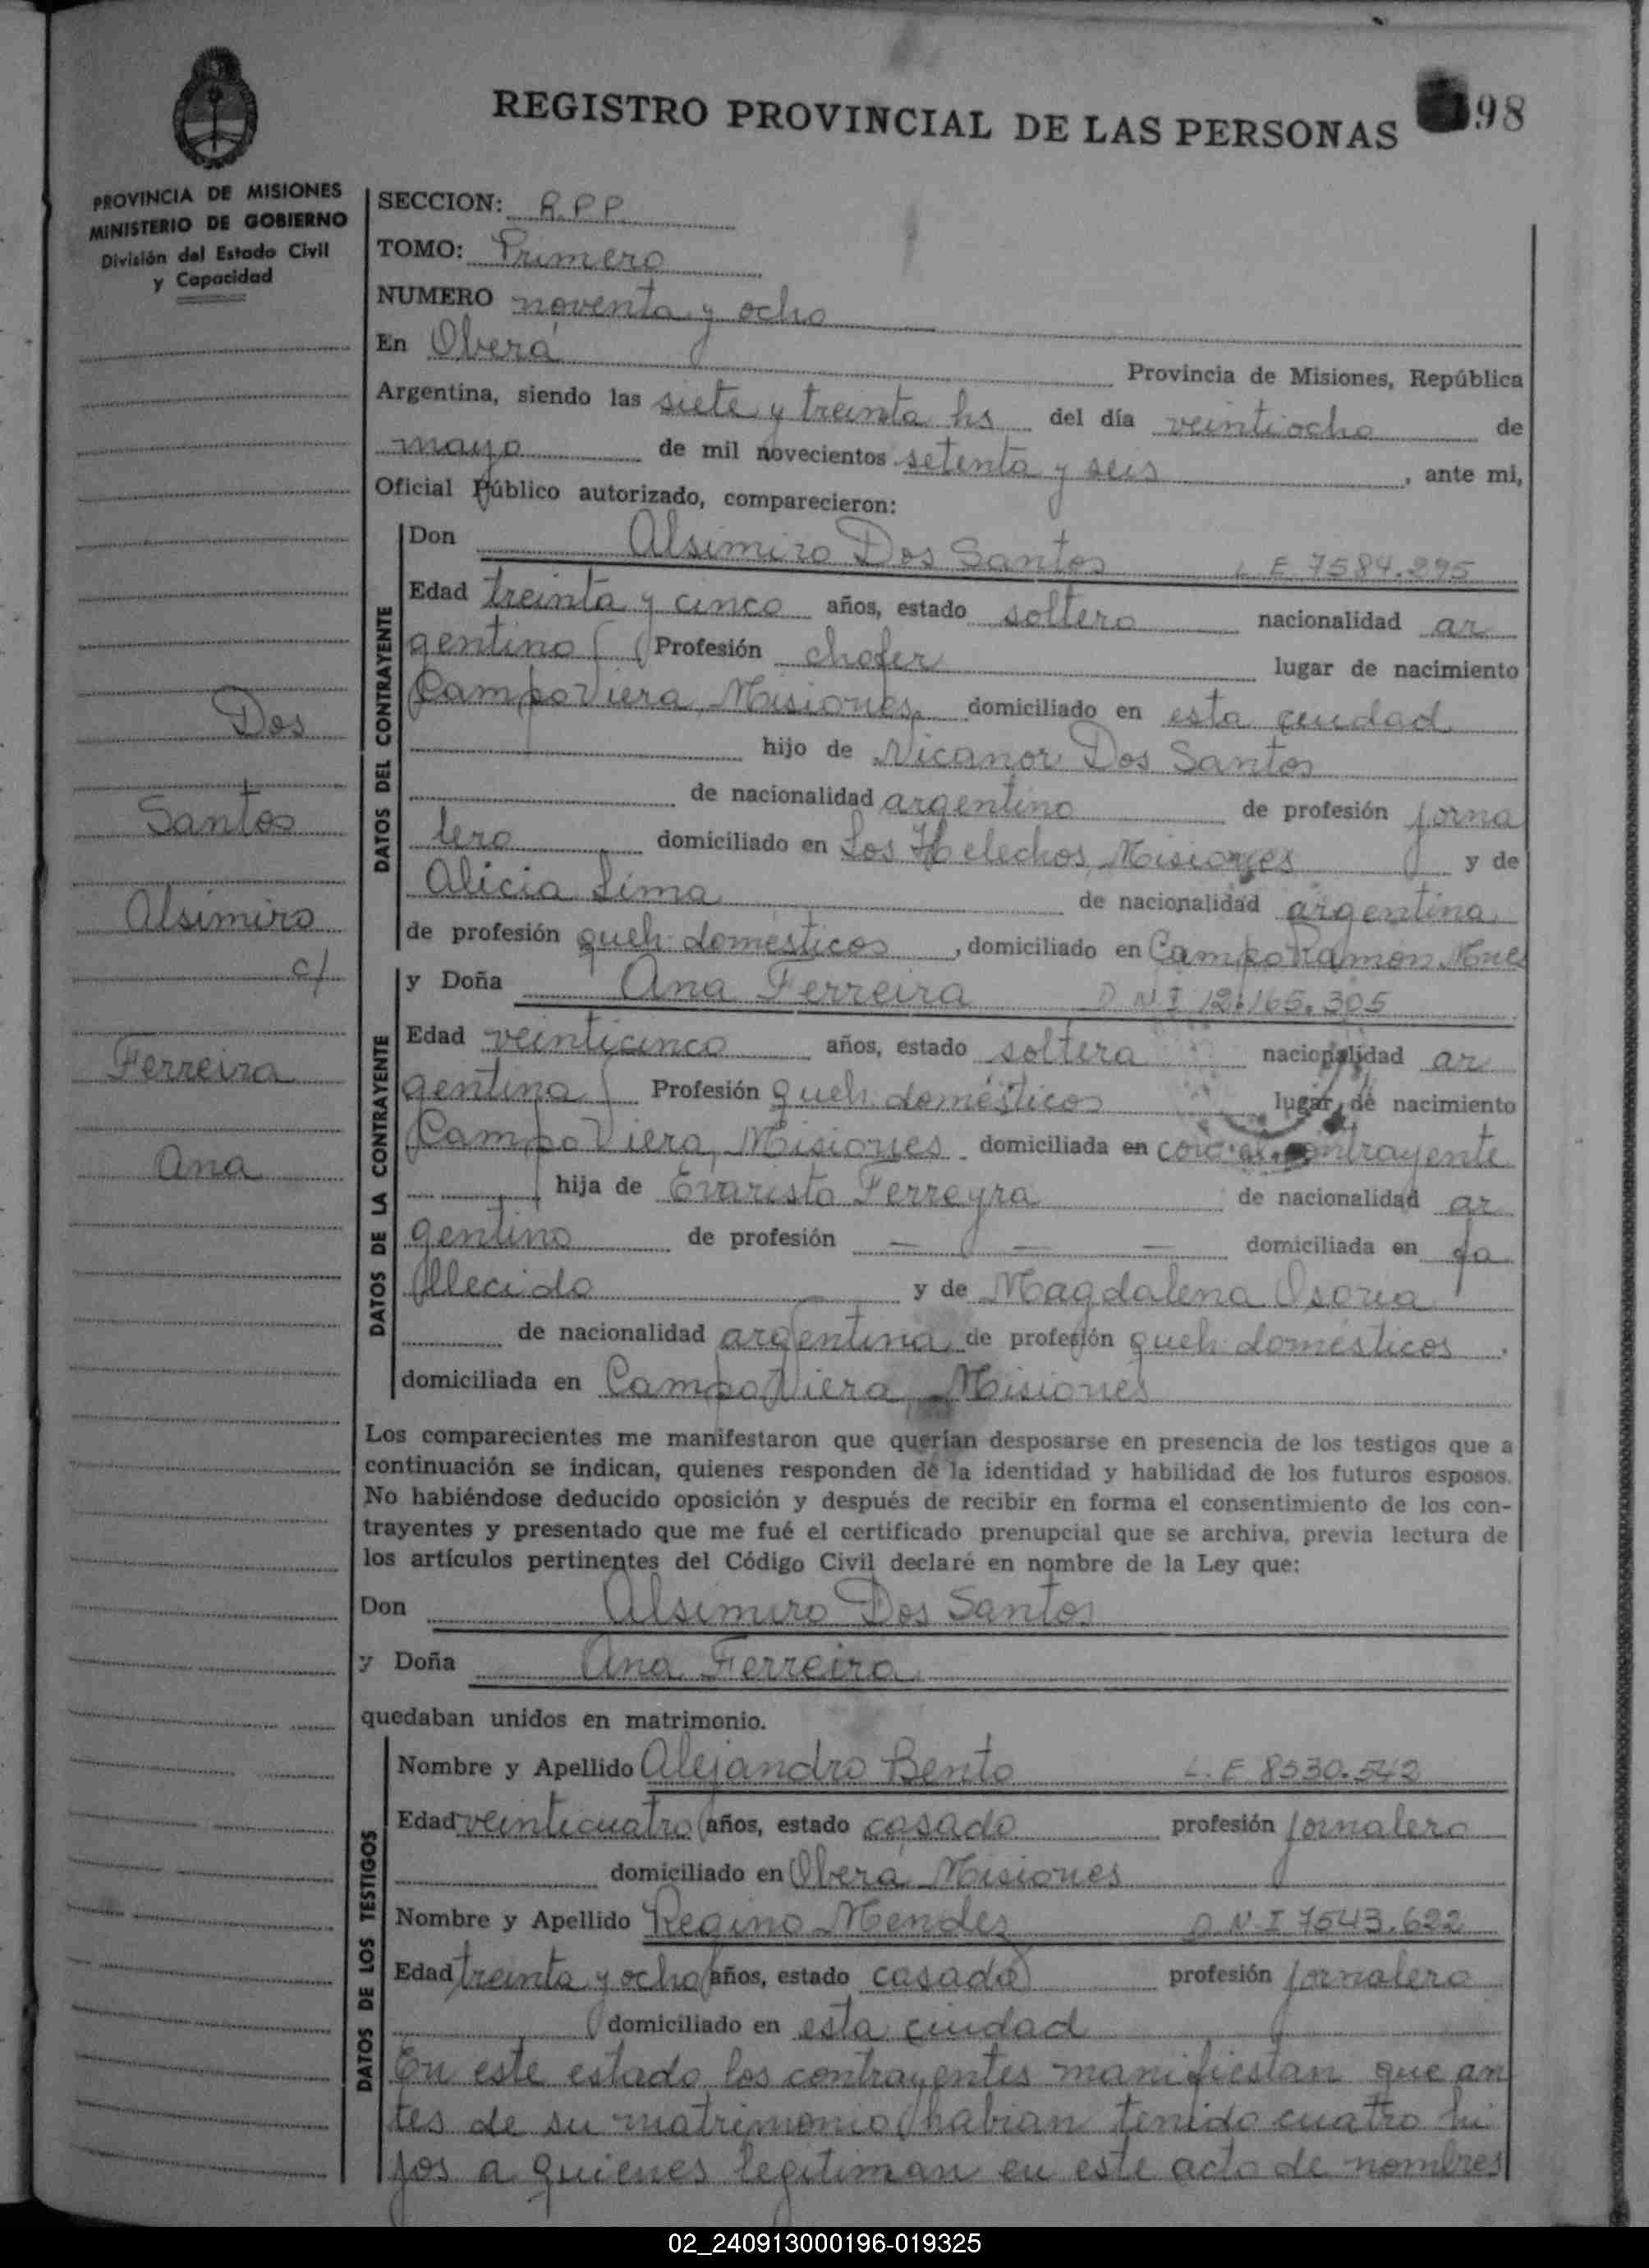 REGISTRO PROVINCIAL DE LAS PERSONAS
98
PROVINCIA DE MISIONES
MINISTERIO DE GOBIERNO
División del Estado Civil
y Capacidad
SECCION: R.P.P.
TOMO: Primero
NUMERO noventa y ocho
En Oberá Provincia de Misiones, República
Argentina, siendo las siete y treinta hs del día veintiocho de
mayo de mil novecientos setenta y seis, ante mi,
Oficial Público autorizado, comparecieron:
DATOS DEL CONTRAYENTE
Don Alsimiro Dos Santos L.E 7584.295
Edad treinta y cinco años, estado soltero nacionalidad ar
gentino Profesión chofer lugar de nacimiento
Campo Viera, Misiones, domiciliado en esta ciudad
hijo de Nicanor Dos Santos
de nacionalidad argentino de profesión jorna
lero domiciliado en Los Helechos, Misiones y de
Alicia Lima de nacionalidad argentina
de profesión queh domésticos, domiciliado en Campo Ramón Mnes
Dos
Santos
Alsimiro
c/
Ferreira
Ana
DATOS DE LA CONTRAYENTE
y Doña Ana Ferreira D N I 12.165.305
Edad veinticinco años, estado soltera nacionalidad ar
gentina Profesión queh. domésticos lugar de nacimiento
Campo Viera, Misiones domiciliada en contrayente
hija de Evaristo Ferreyra de nacionalidad ar
gentino de profesión — — — domiciliada en fa
llecido y de Magdalena Osoria
de nacionalidad argentina de profesión queh domésticos.
domiciliada en Campo Viera, Misiones
Los comparecientes me manifestaron que querían desposarse en presencia de los testigos que a
continuación se indican, quienes responden de la identidad y habilidad de los futuros esposos.
No habiéndose deducido oposición y después de recibir en forma el consentimiento de los con-
trayentes y presentado que me fué el certificado prenupcial que se archiva, previa lectura de
los artículos pertinentes del Código Civil declaré en nombre de la Ley que:
Don Alsimiro Dos Santos
y Doña Ana Ferreira
quedaban unidos en matrimonio.
DATOS DE LOS TESTIGOS
Nombre y Apellido Alejandro Bento L.E 8530.542
Edad veinticuatro años, estado casado profesión jornalero
domiciliado en Oberá, Misiones
Nombre y Apellido Regino Mendez D N I 7543.622
Edad treinta y ocho años, estado casado profesión jornalero
domiciliado en esta ciudad
En este estado los contrayentes manifiestan que an
tes de su matrimonio habian tenido cuatro hi
jos a quienes legitiman en este acto de nombres
02_240913000196-019325